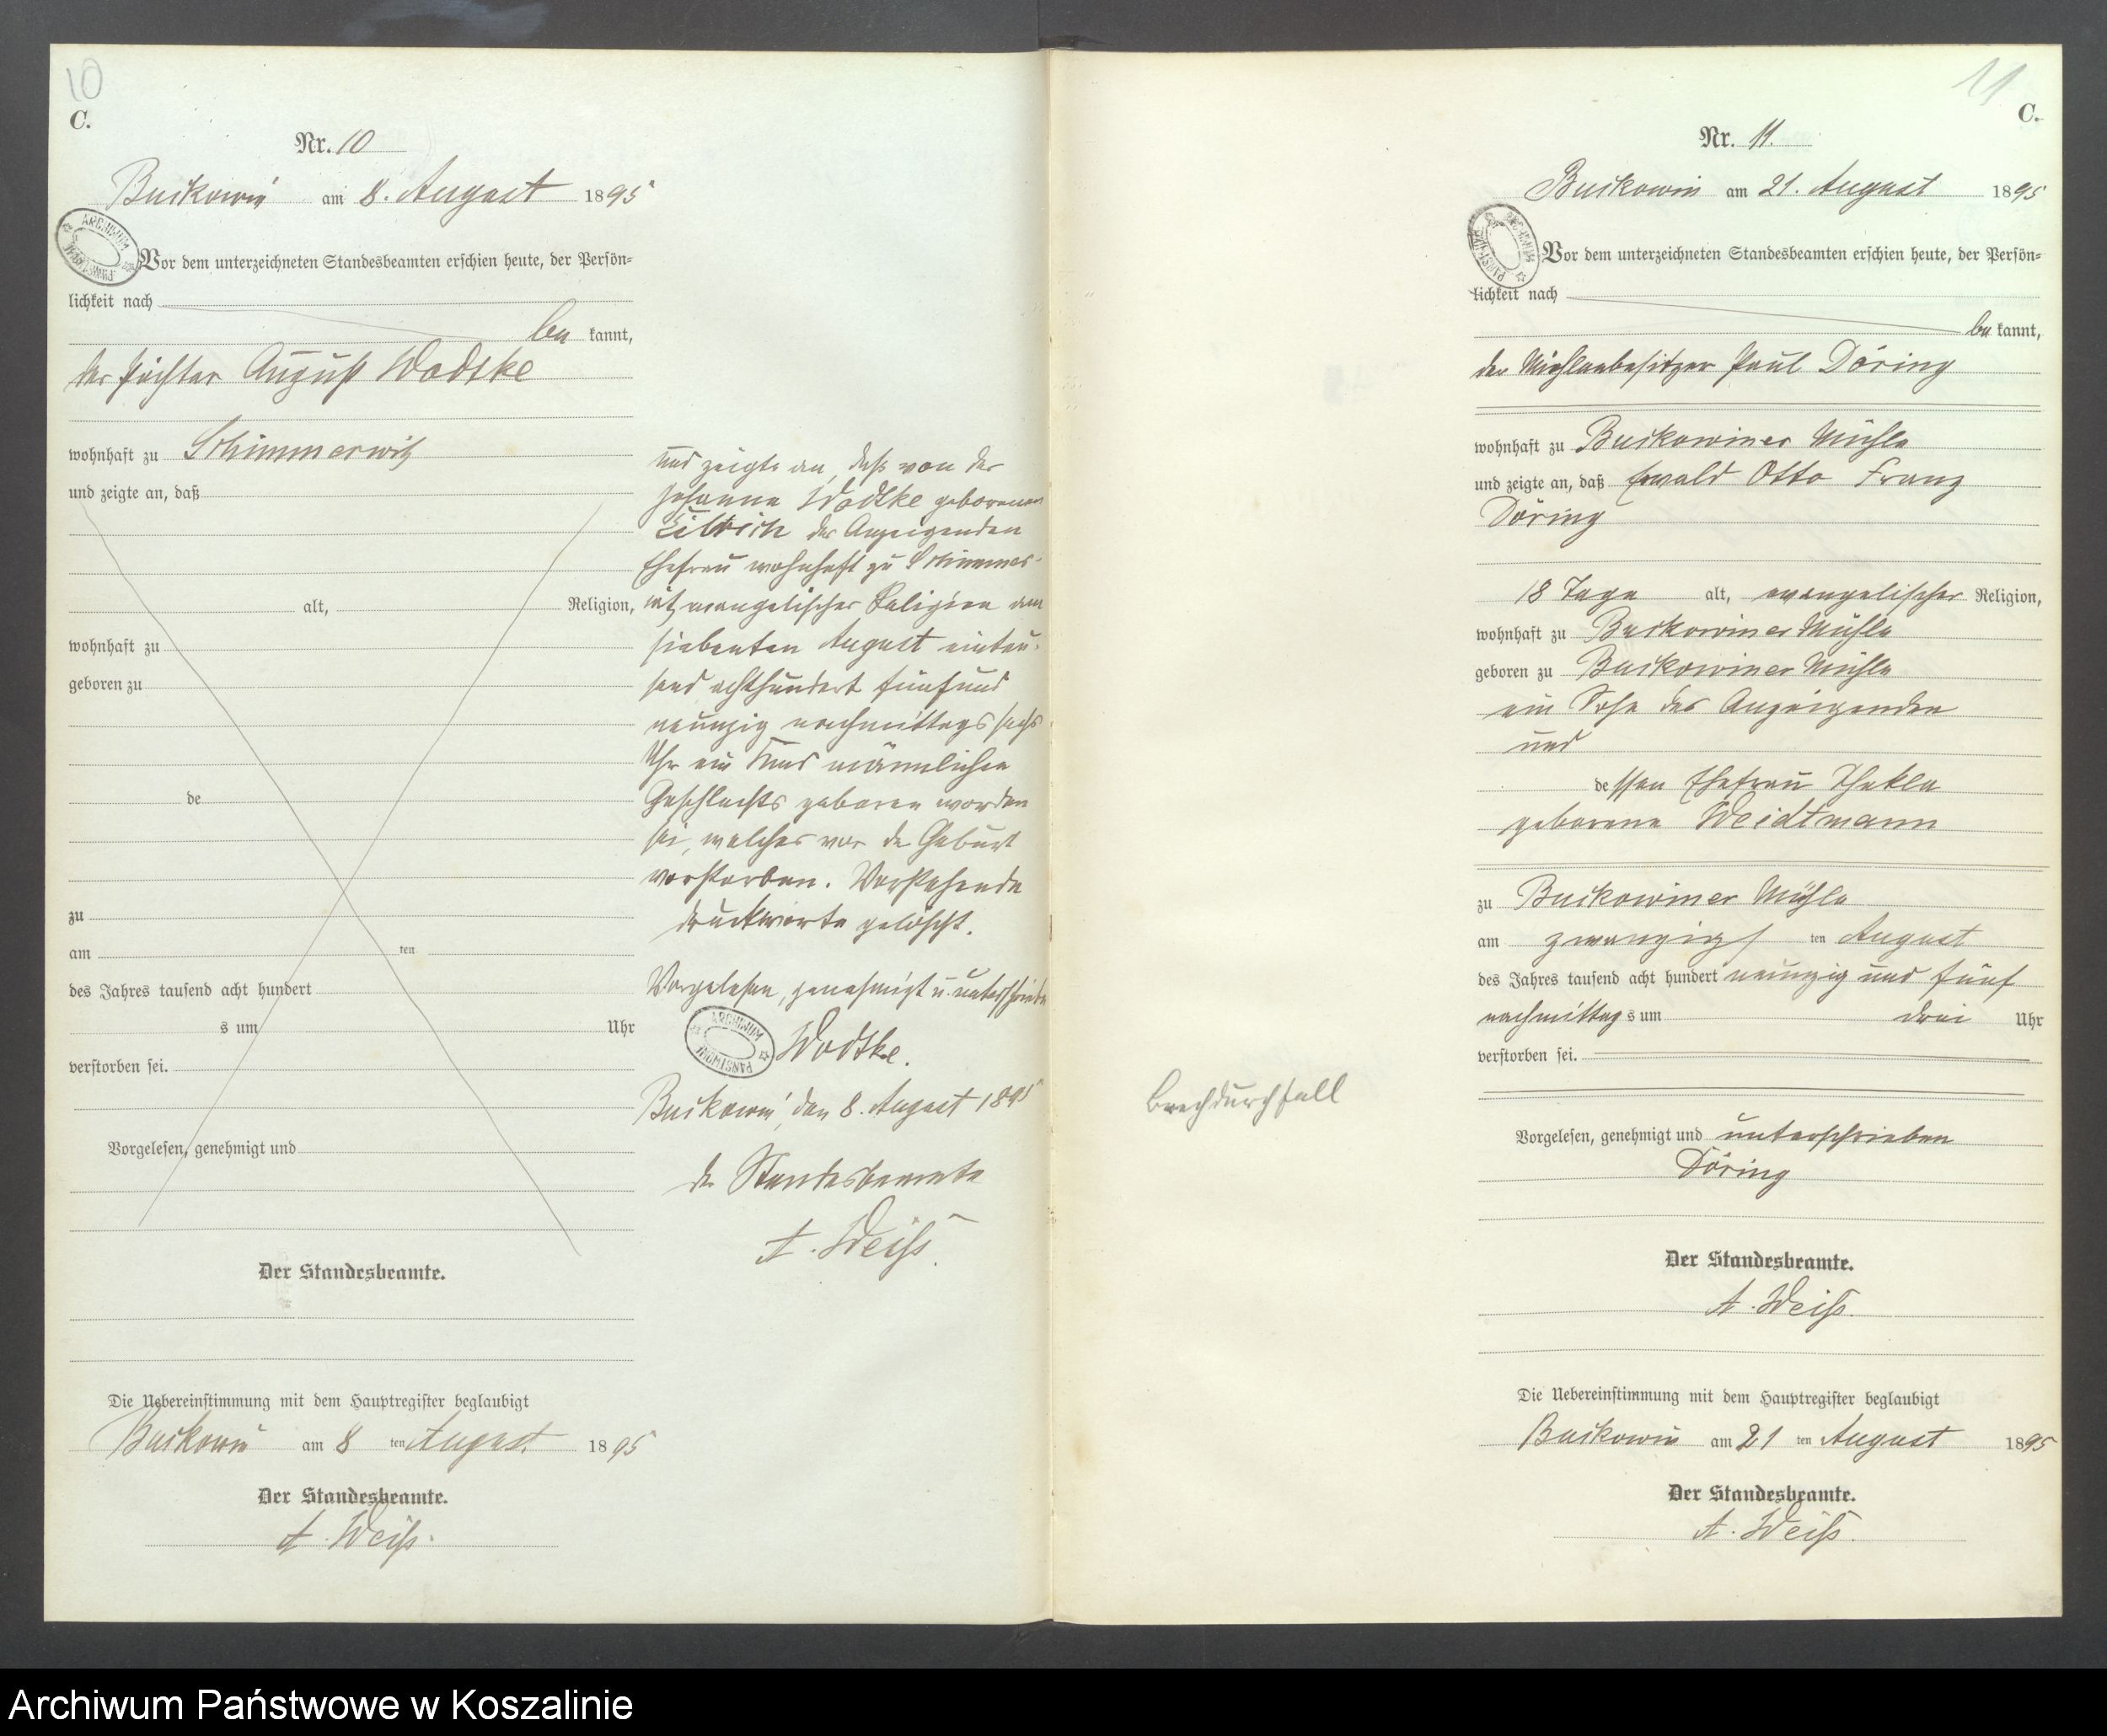 10
C.
Nr. 10
Buckowin am 8. August 1895
ARCHIWUM PAŃSTWOWE
Vor dem unterzeichneten Standesbeamten erschien heute, der Persön-
lichkeit nach
be kannt,
der Pächter August Wodtke
wohnhaft zu Schimmerwitz
und zeigte an, daß
alt, Religion,
wohnhaft zu
geboren zu
de
zu
am ten
des Jahres tausend acht hundert
s um Uhr
verstorben sei.
Vorgelesen, genehmigt und
Der Standesbeamte.
Die Uebereinstimmung mit dem Hauptregister beglaubigt
Buckowin am 8 ten August 1895
Der Standesbeamte.
A. Weiß.
und zeigte an, daß von der
Johanna Wodtke geborenen
der Anzeigenden
Ehefrau wohnhaft zu Schimmer-
witz, evangelischer Religion am
siebenten August eintau-
send achthundert fünfund
neunzig nachmittags sechs
Uhr ein Kind männlichen
Geschlechts geboren worden
sei, welches vor der Geburt
verstorben. Vorstehende
Druckworte gelöscht.
Vorgelesen, genehmigt u. unterschrieben
ARCHIWUM PAŃSTWOWE
Wodtke.
Buckowin, den 8. August 1895
der Standesbeamte
A. Weiß.
Brechdurchfall
11
C.
Nr. 11.
Buckowin am 21. August 1895
ARCHIWUM PAŃSTWOWE
Vor dem unterzeichneten Standesbeamten erschien heute, der Persön-
lichkeit nach
be kannt,
der Mühlenbesitzer Paul Döring
wohnhaft zu Buckowiner Mühle
und zeigte an, daß Ewald Otto Franz
Döring
18 Tage alt, evangelischer Religion,
wohnhaft zu Buckowiner Mühle
geboren zu Buckowiner Mühle
ein Sohn des Anzeigenden
und
dessen Ehefrau Thekla
geborene Weidtmann
zu Buckowiner Mühle
am zwanzigs ten August
des Jahres tausend acht hundert neunzig und fünf
nachmittag s um drei Uhr
verstorben sei.
Vorgelesen, genehmigt und unterschrieben
Döring
Der Standesbeamte.
A. Weiß.
Die Uebereinstimmung mit dem Hauptregister beglaubigt
Buckowin am 21 ten August 1895
Der Standesbeamte.
A. Weiß.
Archiwum Państwowe w Koszalinie